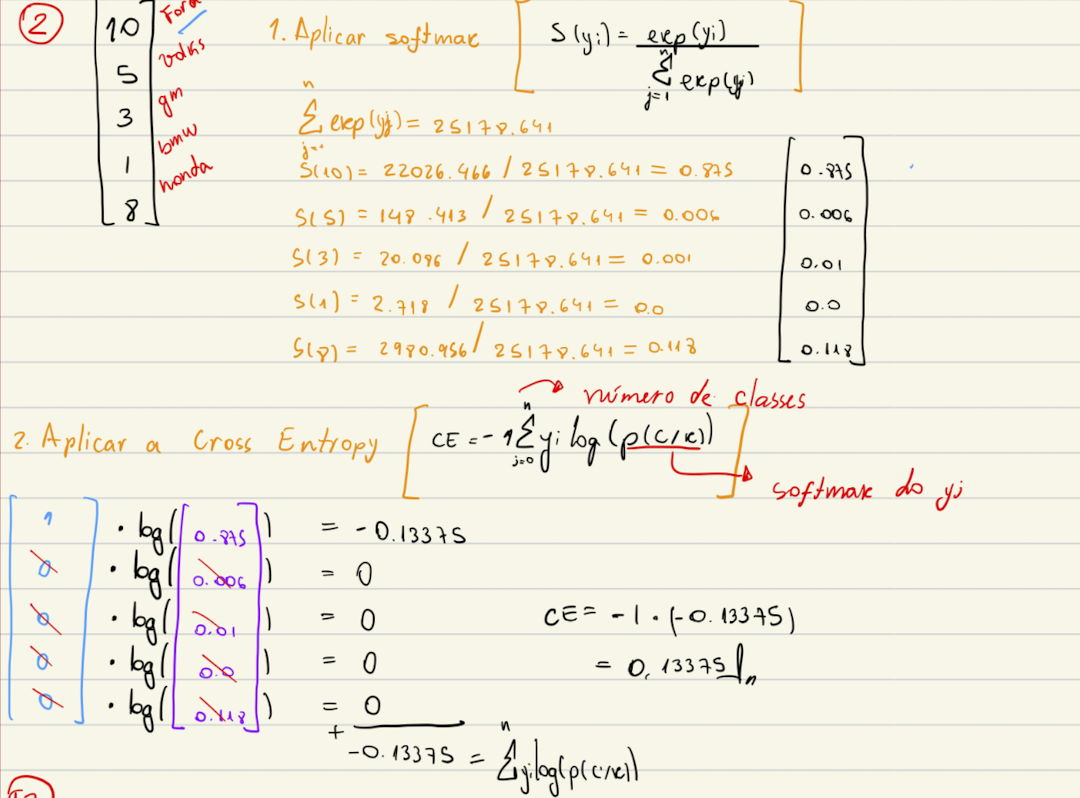 2
10 Ford
5 volks
3 gm
1 bmw
8 honda
1. Aplicar softmax [ S(yi) = exp(yi) / n Σ j=1 exp(yj) ]
n Σ j=1 exp(yj) = 25178.641
S(10) = 22026.466 / 25178.641 = 0.875
S(5) = 148.413 / 25178.641 = 0.006
S(3) = 20.086 / 25178.641 = 0.001
S(1) = 2.718 / 25178.641 = 0.0
S(8) = 2980.956 / 25178.641 = 0.118
0.875
0.006
0.01
0.0
0.118
número de classes
2. Aplicar a Cross Entropy [ CE = -1 n Σ j=0 yi log(p(c/x)) ]
softmax do yi
1 · log(0.875) = -0.13375
0 · log(0.006) = 0
0 · log(0.01) = 0
0 · log(0.0) = 0
0 · log(0.118) = 0
+
-0.13375 = n Σ yi log(p(c/x))
CE = -1 · (-0.13375)
= 0,13375